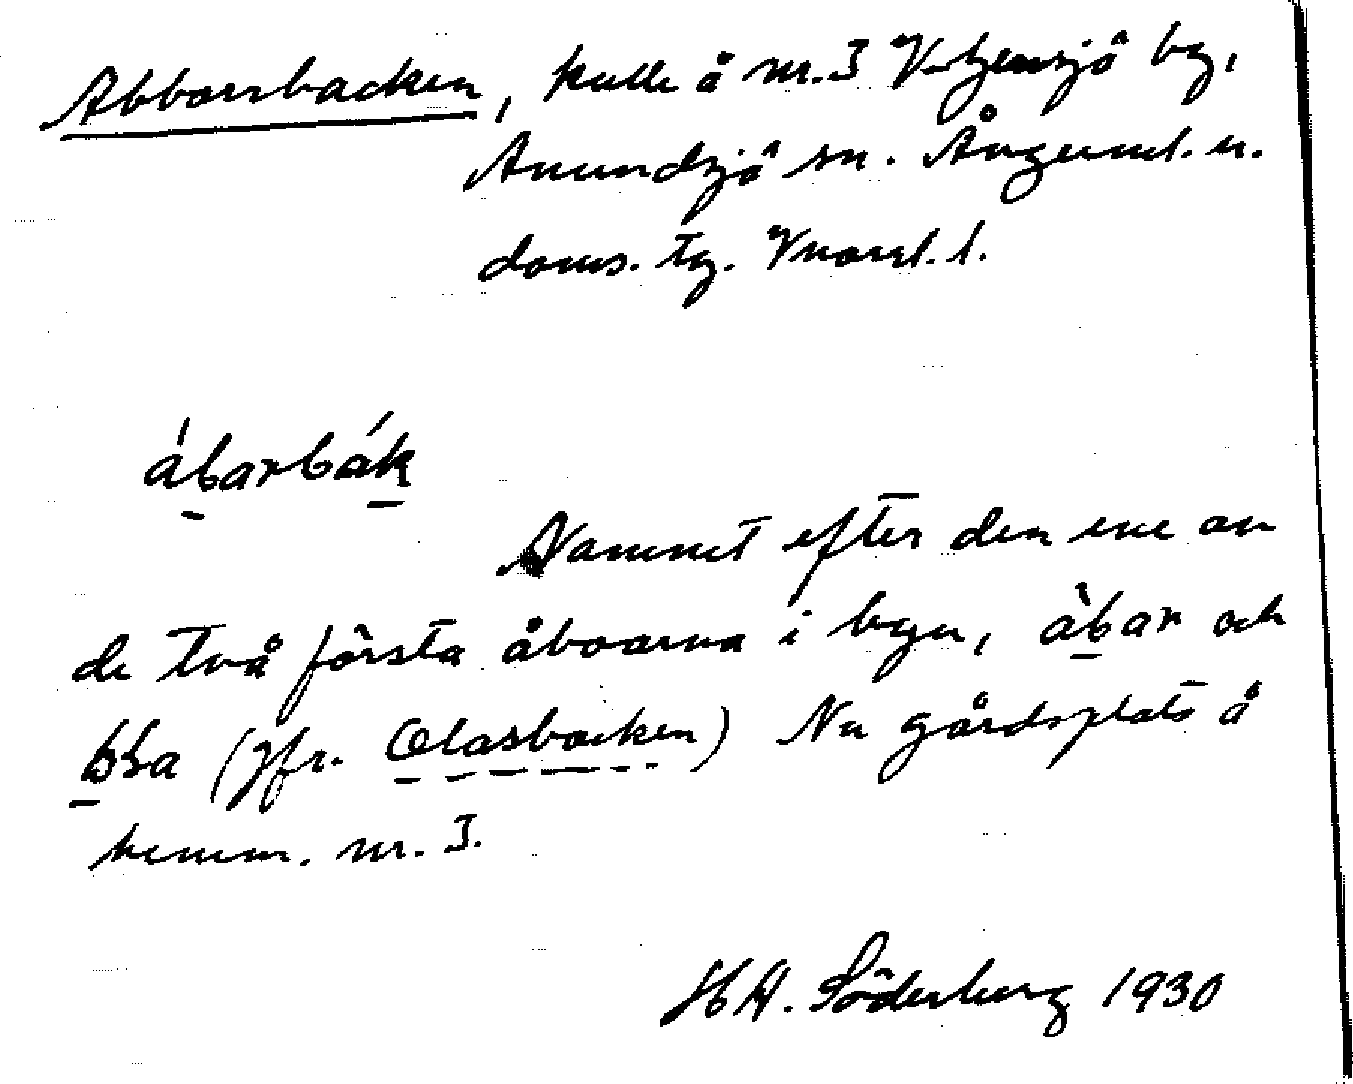 Abborrbacken, kulle å nr. 3 V. Gensjö by,
Anundsjö sn. Ångerml. n.
doms. tg. Vnorrl. l.
ábarbák
Namnet efter den ene av
de två första åboarna i byn, àbar och
(Jfr. Olasbacken) Nu gårdsplats å
hemm. nr. 3.
HA. Söderberg 1930